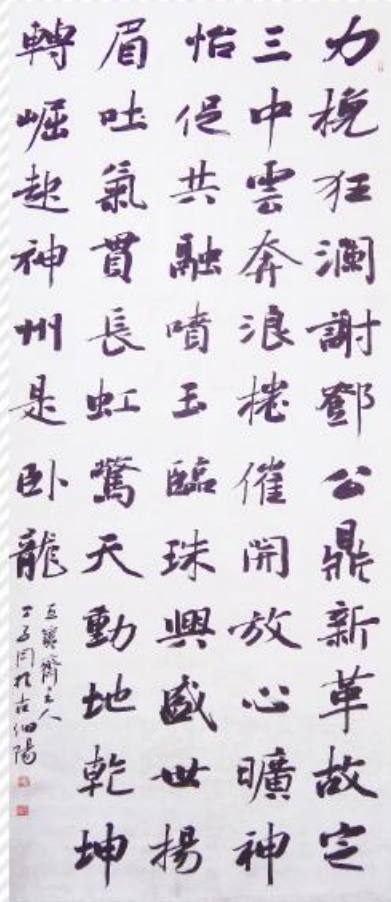 力挽狂瀾謝鄧公鼎新革故定
三中雲奔浪捲催開放心曠神
怡促共融噴玉臨珠興盛世揚
眉吐氣貫長虹驚天動地乾坤
轉崛起神州是卧龍
齋主人
丁於古細陽